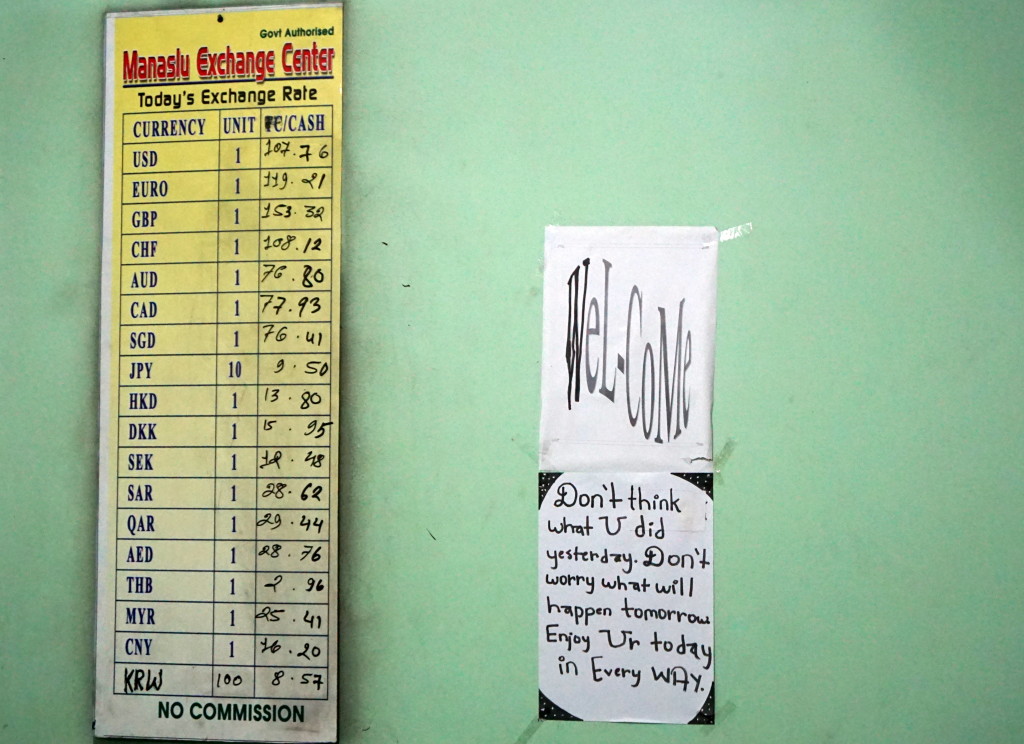 Govt Authorised
Manaslu Exchange Center
Today's Exchange Rate
CURRENCY UNIT FC/CASH
USD 1 107.76
EURO 1 119.21
GBP 1 153.32
CHF 1 108.12
AUD 1 76.80
CAD 1 77.93
SGD 1 76.41
JPY 10 9.50
HKD 1 13.80
DKK 1 15.95
SEK 1 12.48
SAR 1 28.62
QAR 1 29.44
AED 1 28.76
THB 1 2.96
MYR 1 25.41
CNY 1 16.20
KRW 100 8.57
NO COMMISSION
WeL-CoMe
Don't think
what U did
yesterday. Don't
worry what will
happen tomorrow
Enjoy Ur today
in Every WAY.